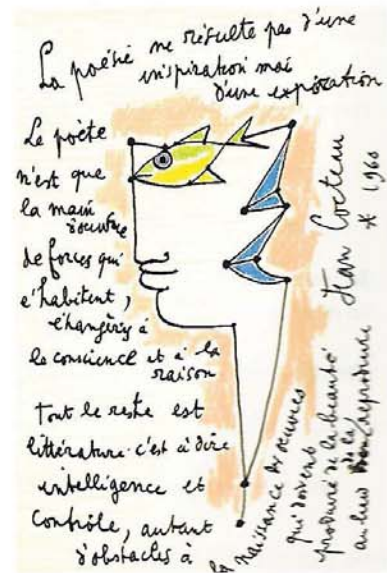 La poésie ne résulte pas d'une
inspiration mai
d'une expiration
Le poète
n'est que
la main
d'œuvre
de forces qui
l'habitent,
étrangères à
la conscience et à la
raison
Tout le reste est
littérature c'est à dire
intelligence et
contrôle, autant
d'obstacles à
la naissance des œuvres
qui doivent
produire de la beauté
au lieu de la reproduire
Jean Cocteau
* 1960